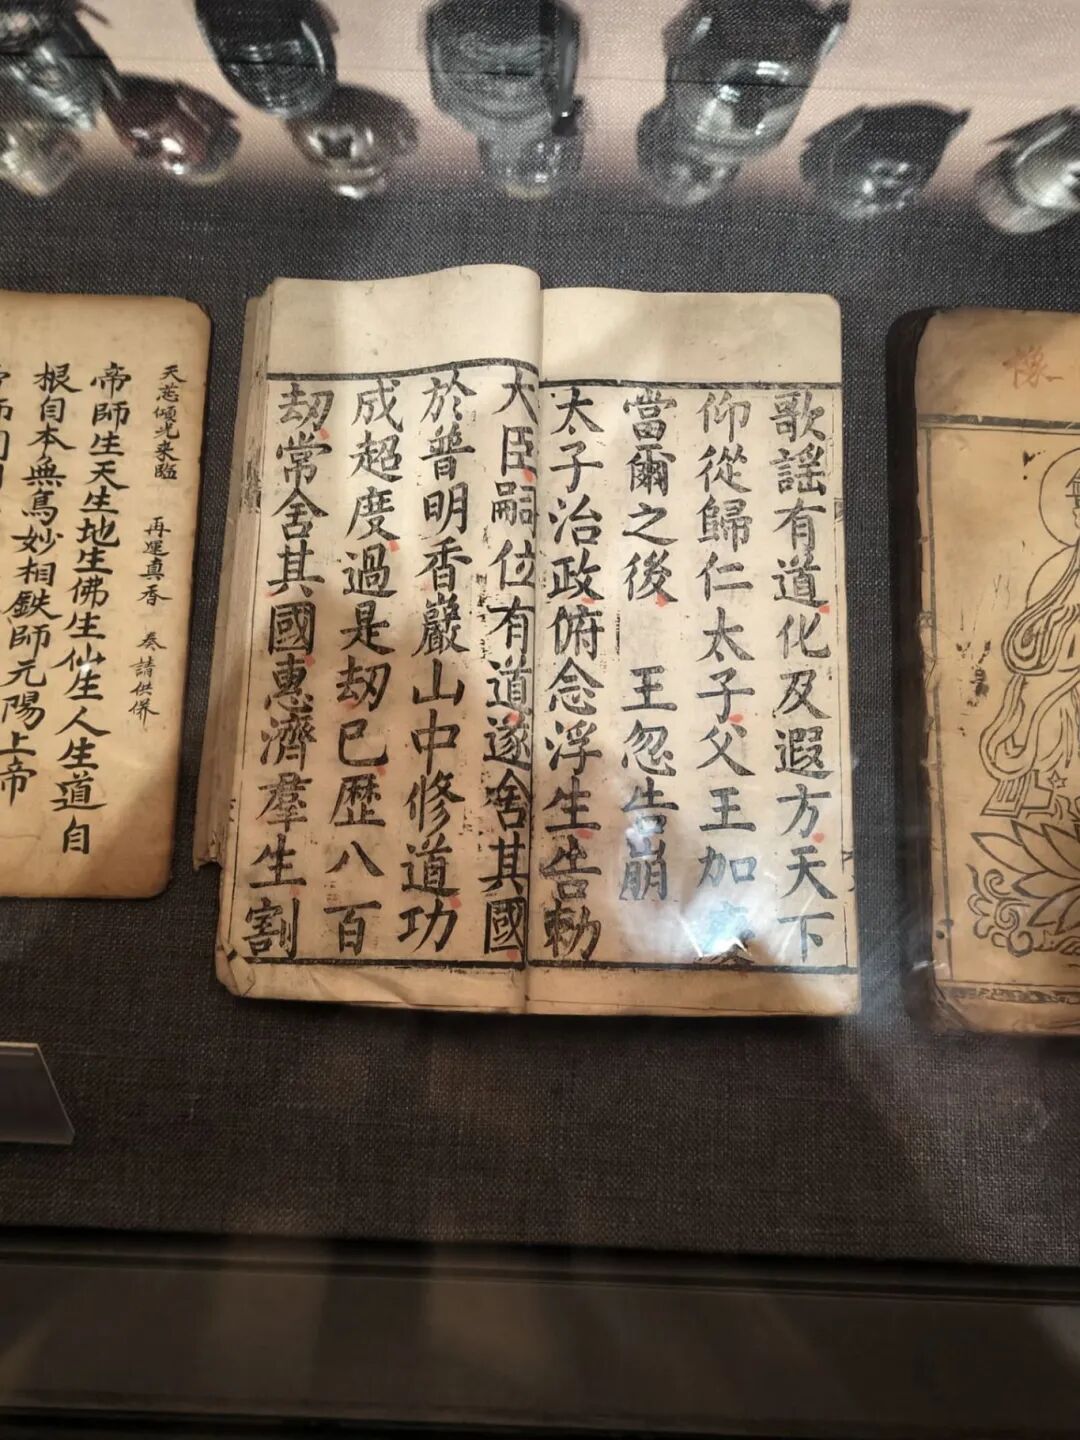 歌謠有道化及遐方天下
仰從歸仁太子父王加
當爾之後 王忽告崩
太子治政俯念浮生告勅
大臣嗣位有道遂舍其國
於普明香巖山中修道功
成超度過是劫已歷八百
劫常舍其國惠濟羣生割
天慈傾光來臨 再運真香 奏請供養
帝師生天生地生佛生仙生人生道自
根自本無為妙相鉄師元陽上帝